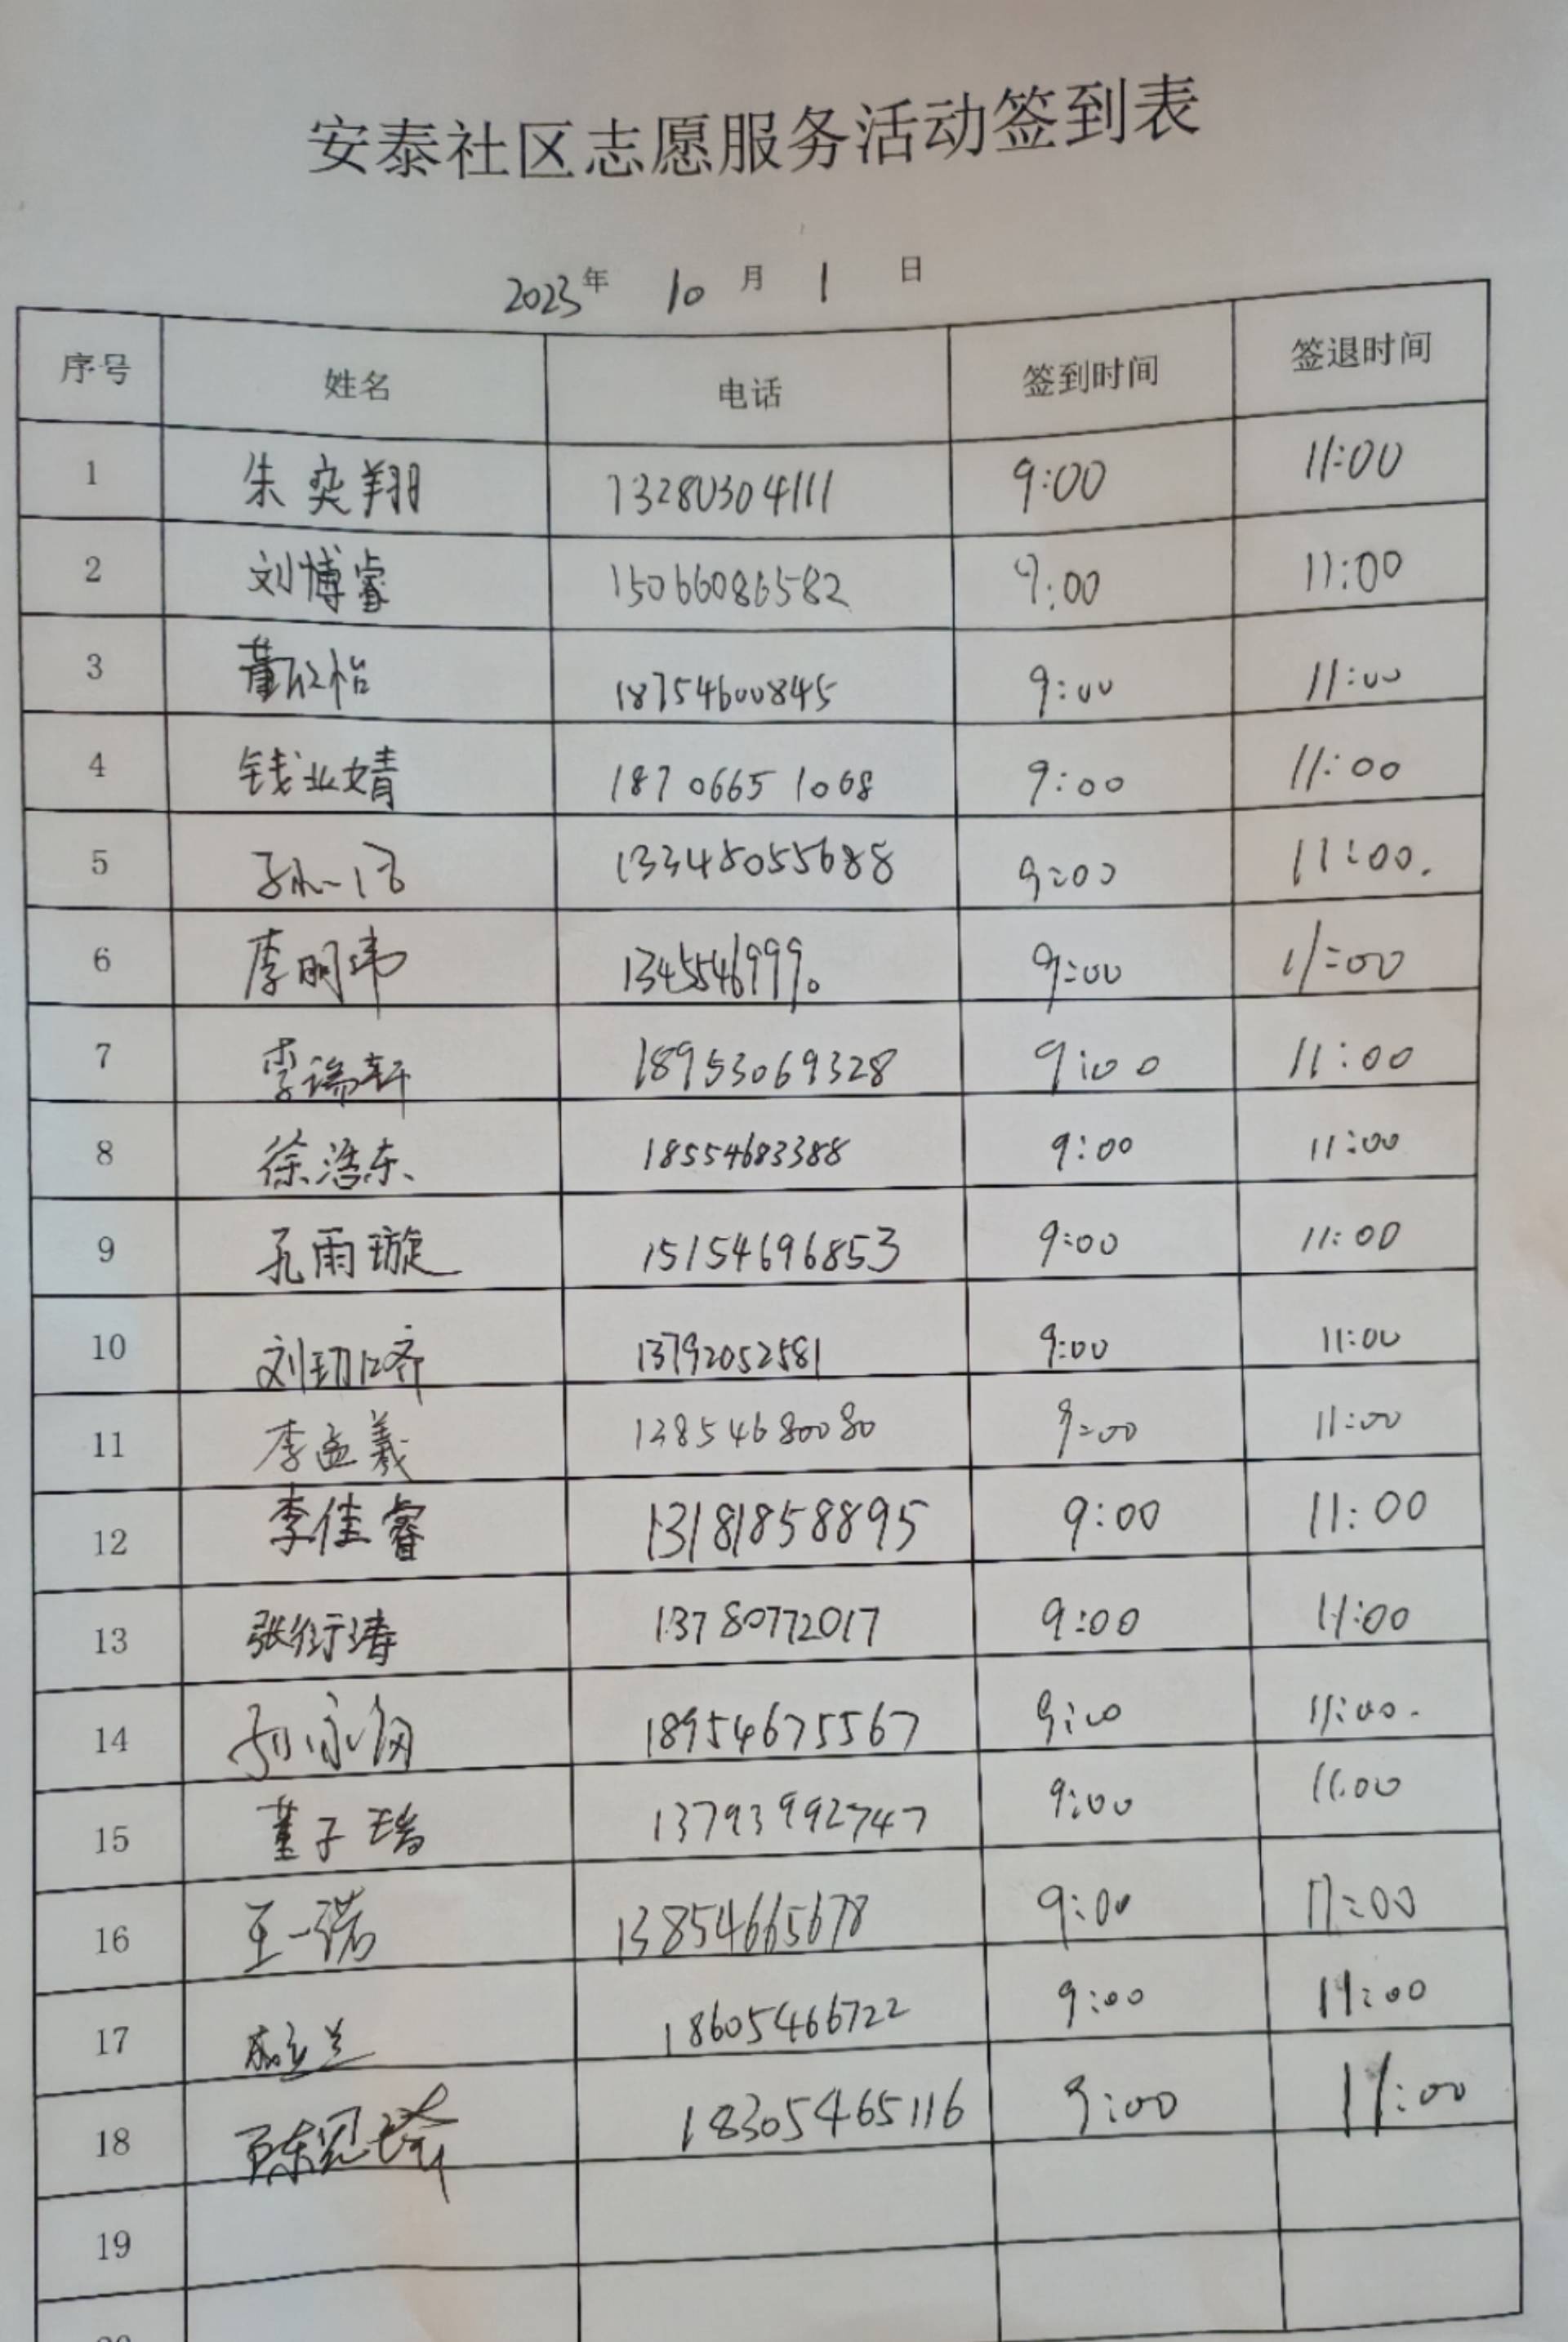 安泰社区志愿服务活动签到表
2023年 10月 1日
序号 姓名 电话 签到时间 签退时间
1 朱奕翔 13280304111 9:00 11:00
2 刘博睿 15066086582 9:00 11:00
3 董欣怡 18754600845 9:00 11:00
4 钱业婧 18706651068 9:00 11:00
5 孙一 13348055688 9:00 11:00.
6 李明玮 13455469990 9:00 11:00
7 李瑞轩 18953069328 9:00 11:00
8 徐浩东 18554683388 9:00 11:00
9 孔雨璇 15154696853 9:00 11:00
10 刘 13792052581 9:00 11:00
11 李孟羲 13854680080 9:00 11:00
12 李佳睿 13181858895 9:00 11:00
13 张衍涛 13780772017 9:00 11:00
14 永钢 18954675567 9:00 11:00.
15 董子瑞 13793992747 9:00 11:00
16 王一诺 13854665678 9:00 11:00
17 18605466722 9:00 11:00
18 陈 18305465116 9:00 11:00
19